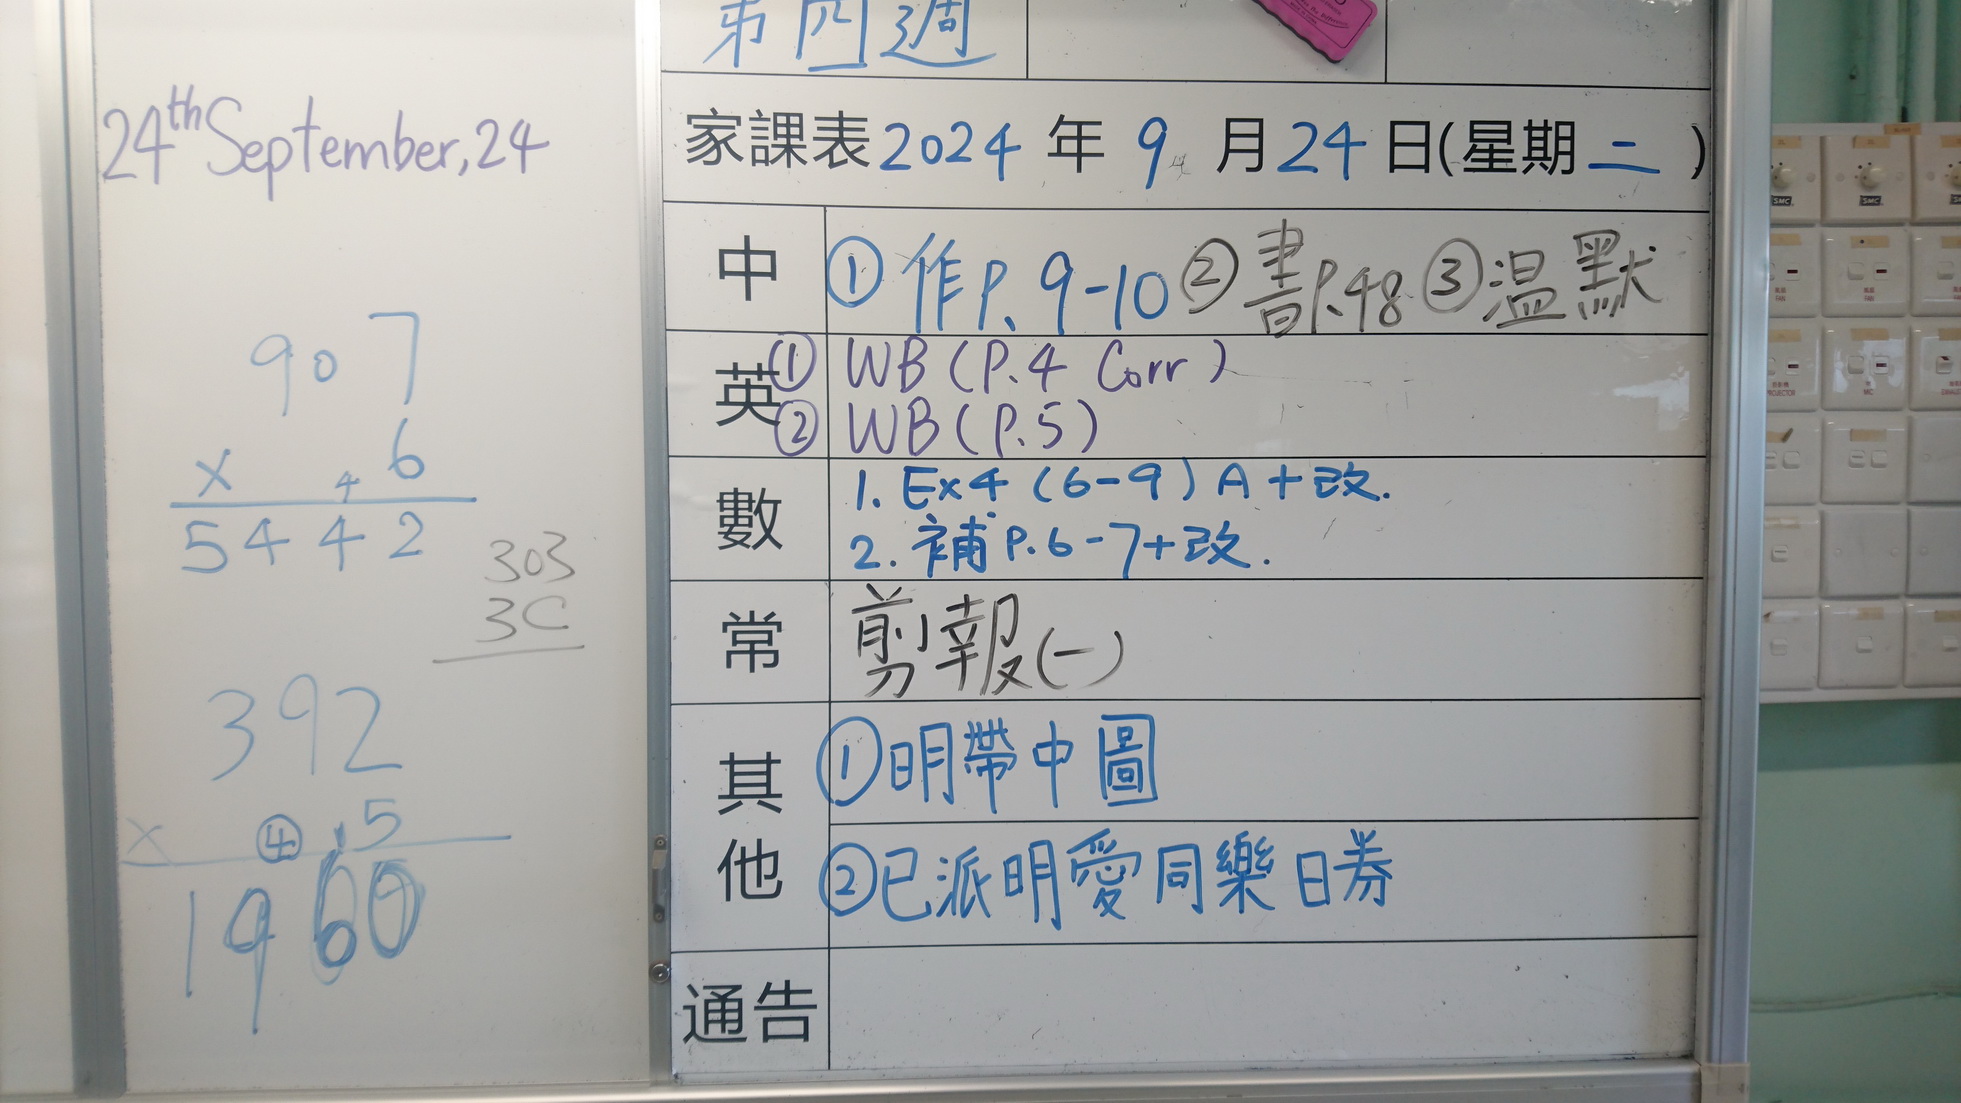 24th September, 24
907
× 4 6
5442
303
3C
392
× ④ 1 5
1960
第四週
家課表2024年9月24日(星期二)
中 ①作P.9-10 ②書P.48 ③温默
英 ① WB (P.4 Corr)
② WB (P.5)
數 1. Ex4 (6-9) A+改.
2. 補P.6-7+改.
常 剪報(一)
其他 ①明帶中圖
②已派明愛同樂日券
通告
SMC
SMC
FAN
FAN
MIC